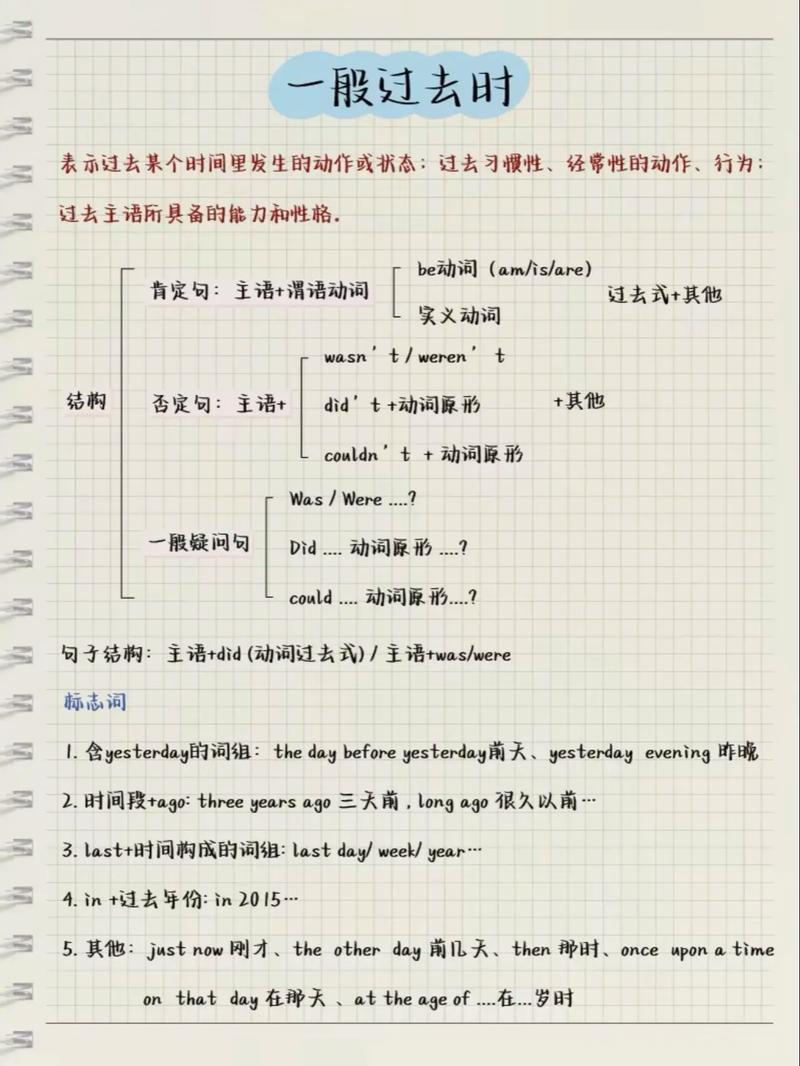 一般过去时
表示过去某个时间里发生的动作或状态；过去习惯性、经常性的动作、行为；
过去主语所具备的能力和性格.
结构
肯定句：主语+谓语动词
be动词（am/is/are）
实义动词
过去式+其他
否定句：主语+
wasn't / weren't
did't +动词原形
couldn't + 动词原形
+其他
一般疑问句
Was / Were ....?
Did .... 动词原形 ....?
could .... 动词原形....?
句子结构：主语+did (动词过去式) / 主语+was/were
标志词
1. 含yesterday的词组：the day before yesterday前天、yesterday evening 昨晚
2. 时间段+ago: three years ago 三天前 , long ago 很久以前…
3. last+时间构成的词组: last day/ week/ year…
4. in +过去年份: in 2015…
5. 其他：just now 刚才、the other day 前几天、then 那时、once upon a time
on that day 在那天 、at the age of ....在...岁时